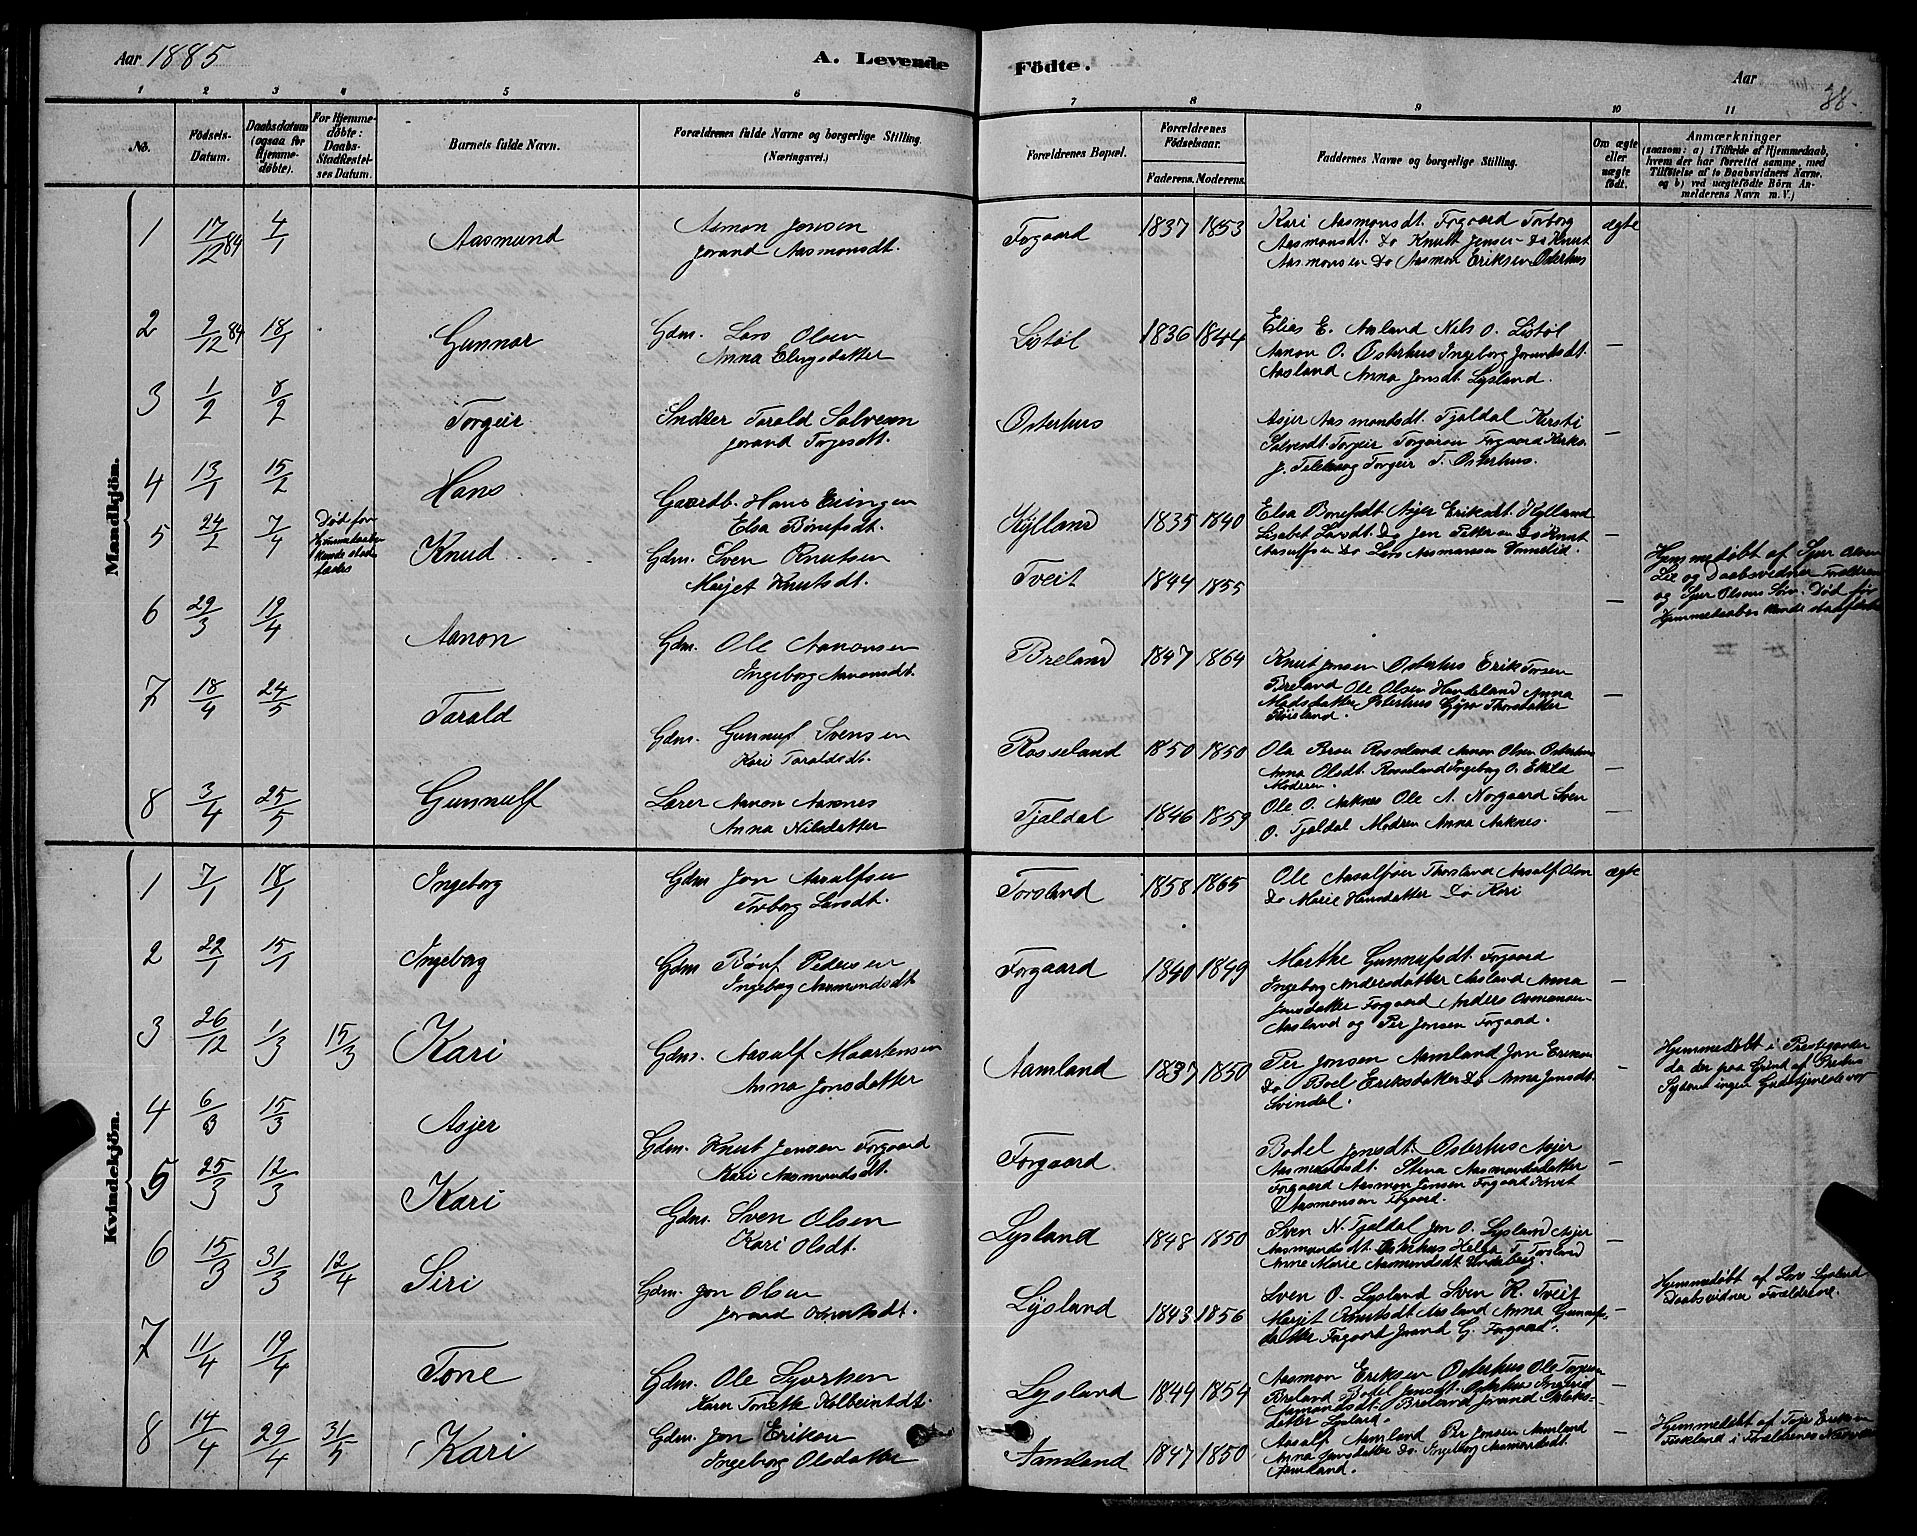 Aar 1885
A. Levende
Födte.
Aar
38.
1 2 3 4 5 6
7 8 9 10 11
No.
Födsels-Datum.
Daabsdatum (ogsaa for Hjemmedöbte).
For Hjemmedöbte: Daabs-Stadfæstelses Datum.
Barnets fulde Navn.
Forældrenes fulde Navne og borgerlige Stilling.
(Næringsvei.)
Forældrenes Bopæl.
Forældrenes Födselsaar.
Faderens. Moderens.
Faddernes Navne og borgerlige Stilling.
Om ægte eller uægte födt.
Anmærkninger
(saasom: a) i Tilfælde af Hjemmedaab, hvem der har forrettet samme, med Tilföielse af to Daabsvidners Navne. og b) ved uægtefödte Börn Anmelderens Navn m. V.)
Mandkjön.
1 17/12 84 4/1 Aasmund
Aamon Jensen
Jorand Aasmonsdt.
Torgaard 1837 1853
Kari Aasmonsdt. Forgaard Torborg
Aasmonsdt. do Knut Jensen do Knut
Aasmonsen do Aasmon Eriksen Osterhus
ægte
2 9/12 84 18/1 Gunnar
Gdm. Lars Olsen
Anna Elingsdatter
Listöl 1836 1844
Elias E. Aasland Nils O. Listöl
Aanon O. Osterhus Ingeborg Jorundsdt.
Aasland Anna Jonsdt. Lysland.
—
3 1/2 8/2 Torgeir
Tarald Salvesen
Jorand Torjesdt.
Osterhus
Asjer Aasmondsdt. Tjaldal Kirsti
Salvesdt. Torgeir Torgeirsen Forgaard
Torgeir T. Osterhus.
—
4 13/1 15/2 Hans
Gaardb. Hans Elingsen
Elsa Bönefsdt.
Kylland 1835 1840
Elsa Bonefsdt Asjer Eriksdt. Kylland
Lisabet Larsdt. do Jon Pettersen do Knut
Aasulfsen do Lars Aasmonsen
—
5 24/2 7/4
Död før Hjemmedaaben kunde stadfæstes
Knud
Gdm. Sven Knutsen
Marjet Knutsdt.
Tveit 1844 1855
—
Hjemmedöbt af Sjur Olsen
Lie og Daabsvidner Forældrene
og Sjur Olsens Sön. Död för
Hjemmedaaben kunde stadfæstes
6 29/3 19/4 Aanon
Gdm. Ole Aanonsen
Ingeborg Aanonsdt.
Breland 1847 1864
Knut Jensen Osterhus Erik Torsen
Breland Ole Olsen Handeland Anna
Madsdatter Osterhus Thorsdatter
Röisland.
—
7 18/4 24/5 Tarald
Gdm. Gunnuf Svensen
Kari Taraldsdt.
Rosseland 1850 1850
Ola Rosseland Aanon Olsen Osterhus
Anna Olsdt. Rosseland Ingeborg O. Ekeld
Moderen.
—
8 3/4 25/5 Gunnulf
Lærer Aanon Aaknes
Anna Nilsdatter
Tjaldal 1846 1859
Ole O. Aaknes Ole A. Norgaard Sven
O. Tjaldal Modren Anna Aaknes.
—
Kvindekjön.
1 7/1 18/1 Ingeborg
Gdm Jon Aasulfsen
Torborg Larsdt.
Torsland 1858 1865
Ole Aasulfsen Thorsland Aasulf Olsen
do Marie Hansdatter do Kari
ægte
2 22/1 15/1 Ingeborg
Gdm Bönf Pedersen
Ingeborg Aasmondsdt.
Forgaard 1840 1849
Marthe Gunnufsdt. Forgaard
Ingeborg Andersdatter Aasland Anna
Jonsdatter Forgaard Anders Osmonsen
Aasland og Per Jonsen Forgaard.
—
3 26/12 1/3 15/3 Kari
Gdm. Aasulf Maartensen
Anna Jonsdatter
Aamland 1837 1850
Per Jonsen Aamland Jon Eriksen
do Boel Eriksdatter do Anna Jonsdt.
Svindal.
—
Hjemmedöbt i Prestegaarden
da der paa Grund af Prestens
Sygdom ingen Gudstjeneste var
4 6/3 15/3 Asjer
Gdm. Knut Jensen Forgaard
Kari Aasmondsdt.
Forgaard
Bodel Jonsdt. Osterhus Asjer
Aasmundsdt. Stina Aasmondsdatter
Forgaard Aasmon Jensen Forgaard Knut
Aasmonsen Forgaard.
—
5 25/3 12/3 Kari
Gdm. Sven Olsen
Kari Olsdt.
Lysland 1848 1850
Sven N. Tjaldal Jon O. Lysland Asjer
Aasmundsdt. Osterhus Helga J. Torsland
Anne Marie Aasmundsdt.
—
6 15/3 31/3 12/4 Siri
Gdm. Jon Olsen
Jorand
Lysland 1843 1856
Sven O. Lysland Sven K. Tveit
Marjet Knutsdt Aasland Anna Gunnufs-
datter Forgaard Jorand G. Forgaard.
—
Hjemmedöbt af Lars Lysland
Daabsvidner Forældrene.
7 11/4 19/4 Tone
Gdm. Ole Syvertsen
Karen Tonette Kolbeinsdt.
Lysland 1844 1854
Aasmon Eriksen Osterhus Ole Torjussen
Breland Bodel Jonsdt. Osterhus Ingrid
Aamundsdt. Breland Jorand
datter Lysland.
—
8 14/4 29/4 31/5 Kari
Gdm. Jon Eriksen
Ingeborg Olsdatter
Aamland 1847 1850
Aasulf Aamland Per Jonsen Aamland
Anna Jonsdatter do. Ingeborg Aasmondsdt.
Aamland.
—
Hjemmedöbt af Tore Eriksen
i Forældrenes